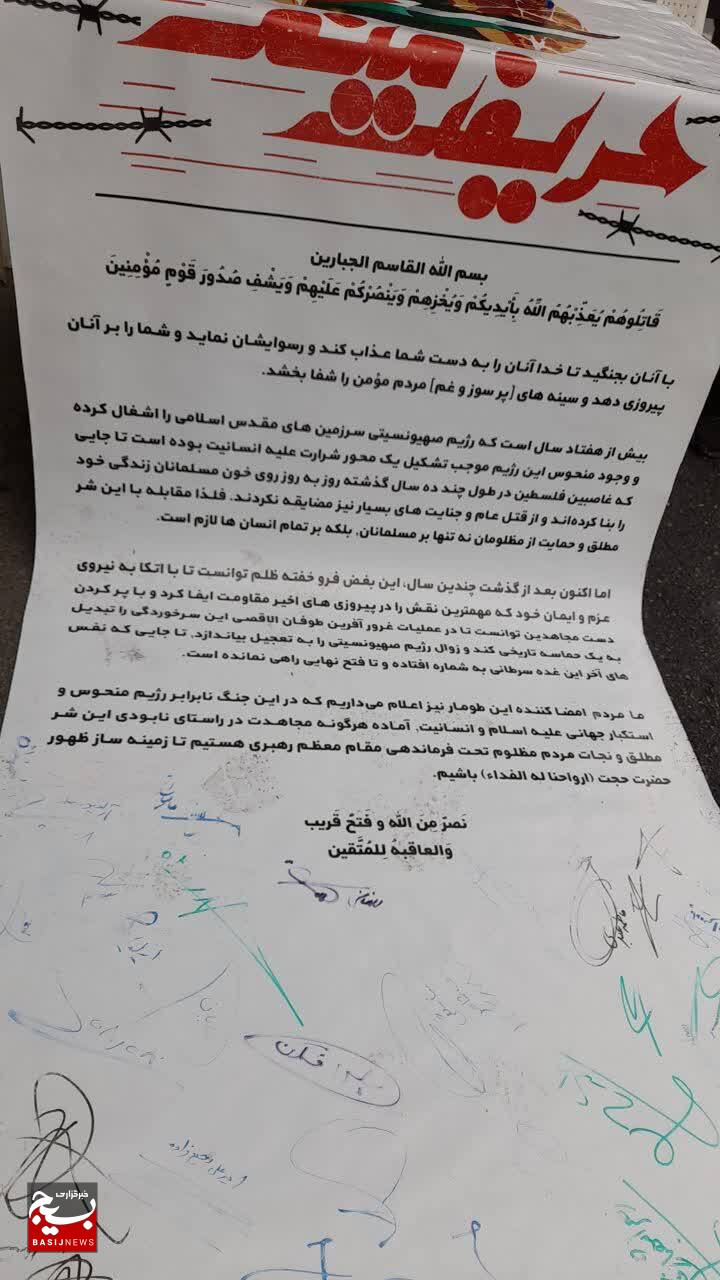 حریفت منم
بسم الله القاسم الجبارین
قَاتِلُوهُمْ يُعَذِّبْهُمُ اللَّهُ بِأَيْدِيكُمْ وَيُخْزِهِمْ وَيَنْصُرْكُمْ عَلَيْهِمْ وَيَشْفِ صُدُورَ قَوْمٍ مُؤْمِنِينَ
با آنان بجنگید تا خدا آنان را به دست شما عذاب کند و رسوایشان نماید و شما را بر آنان
پیروزی دهد و سینه های [پر سوز و غم] مردم مؤمن را شفا بخشد.
بیش از هفتاد سال است که رژیم صهیونسیتی سرزمین های مقدس اسلامی را اشغال کرده
و وجود منحوس این رژیم موجب تشکیل یک محور شرارت علیه انسانیت بوده است تا جایی
که غاصبین فلسطین در طول چند ده سال گذشته روز به روز روی خون مسلمانان زندگی خود
را بنا کرده‌اند و از قتل عام و جنایت های بسیار نیز مضایقه نکردند. فلذا مقابله با این شر
مطلق و حمایت از مظلومان نه تنها بر مسلمانان، بلکه بر تمام انسان ها لازم است.
اما اکنون بعد از گذشت چندین سال، این بغض فرو خفته ظلم توانست تا با اتکا به نیروی
عزم و ایمان خود که مهمترین نقش را در پیروزی های اخیر مقاومت ایفا کرد و با پر کردن
دست مجاهدین توانست تا در عملیات غرور آفرین طوفان الاقصی این سرخوردگی را تبدیل
به یک حماسه تاریخی کند و زوال رژیم صهیونسیتی را به تعجیل بیاندازد، تا جایی که نفس
های آخر این غده سرطانی به شماره افتاده و تا فتح نهایی راهی نمانده است.
ما مردم امضا کننده این طومار نیز اعلام می‌داریم که در این جنگ نابرابر رژیم منحوس و
استکبار جهانی علیه اسلام و انسانیت، آماده هرگونه مجاهدت در راستای نابودی این شر
مطلق و نجات مردم مظلوم تحت فرماندهی مقام معظم رهبری هستیم تا زمینه ساز ظهور
حضرت حجت (ارواحنا له الفداء) باشیم.
نَصرٌ مِنَ الله و فَتحٌ قَریب
وَالعاقبهُ لِلمُتَّقین
خبرگزاری
بسیج
BASIJNEWS